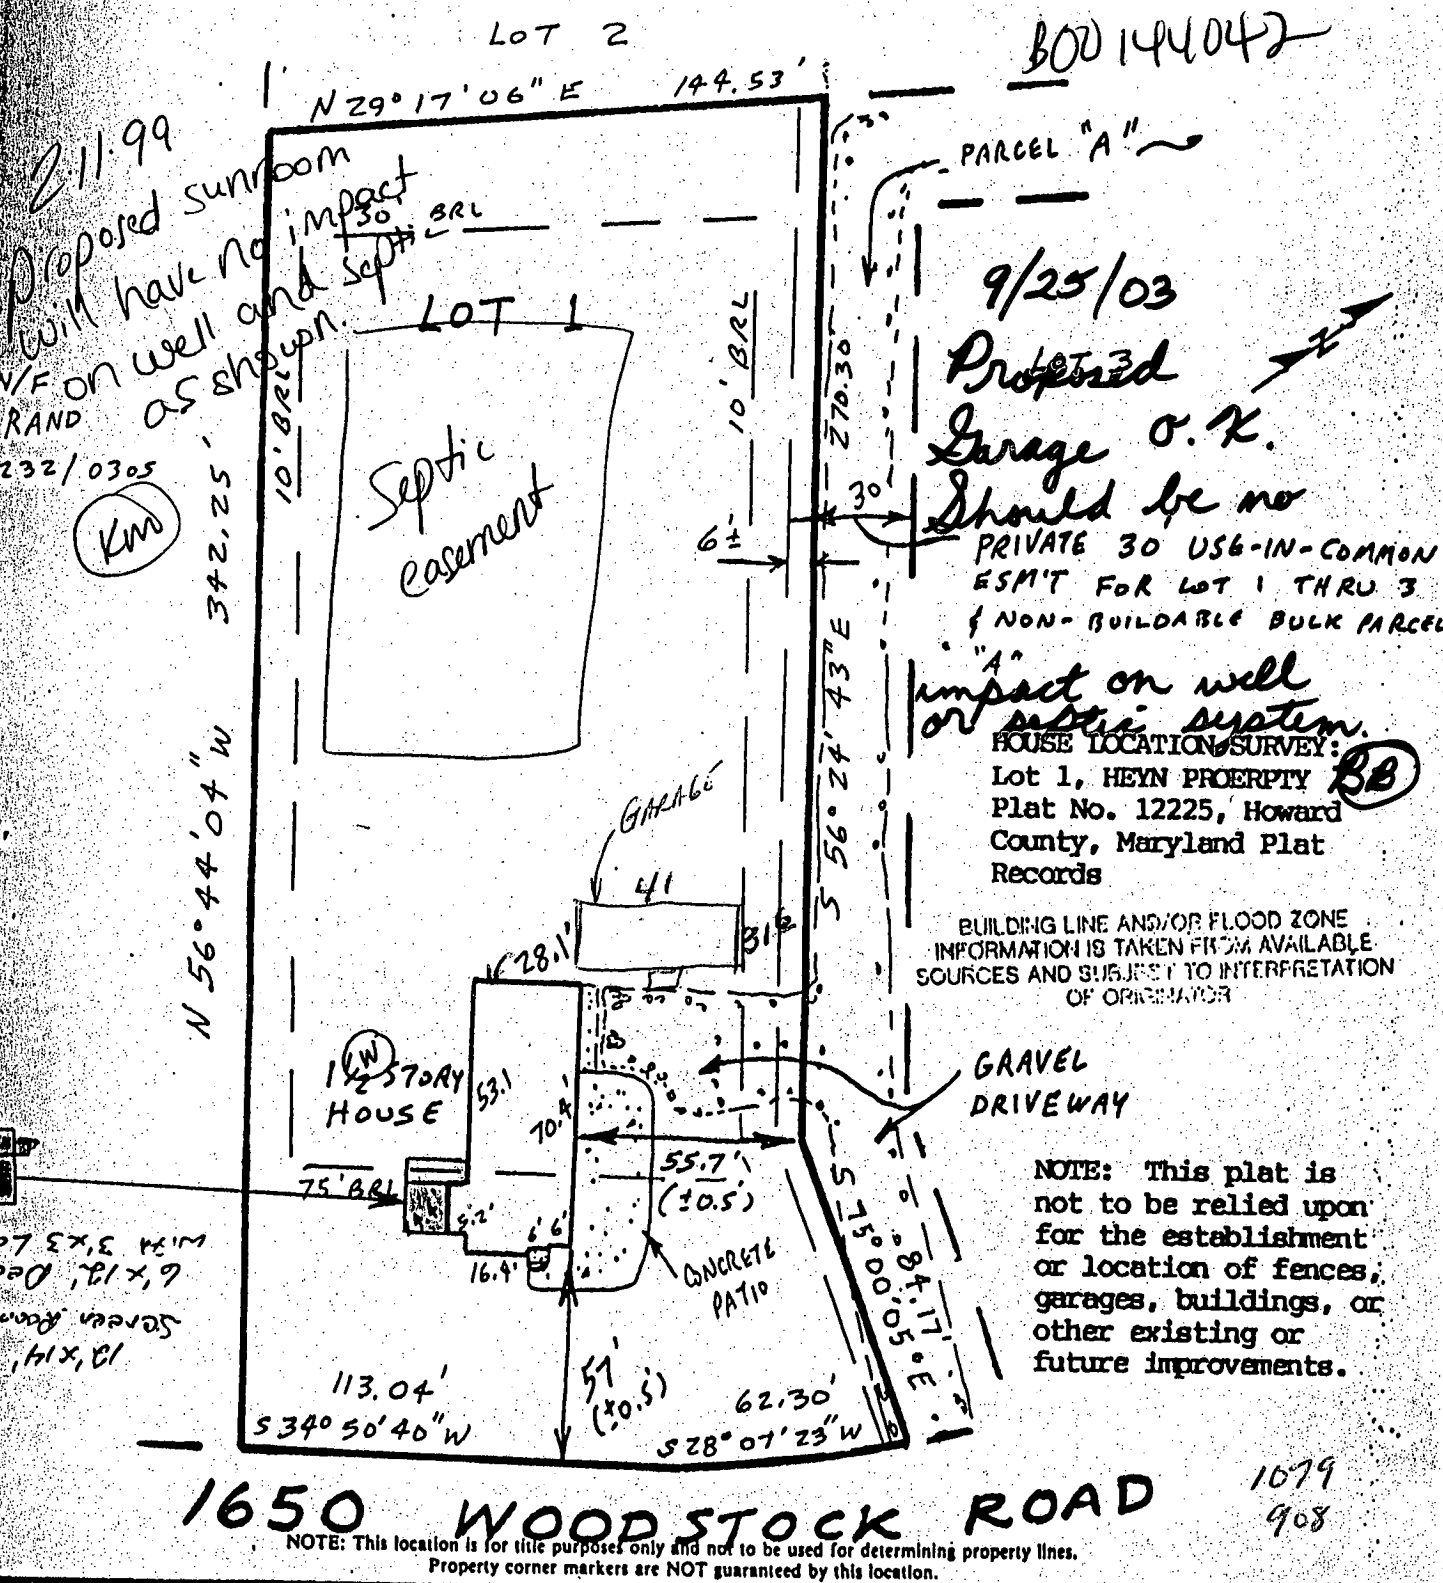 LOT 2
B00144042
N 29° 17' 06" E 144.53'
2.11.99
Proposed sunroom
will have no impact
on well and septic
as shown.
30' BRL
PARCEL "A"
LOT 1
N/F
RAND
232/0305
KW
10' BRL
10' BRL
270.30
342.25'
N 56° 44' 04" W
Septic
easement
9/25/03
LOT 3
Proposed
Garage O.K.
Should be no
impact on well
or septic system.
BB
N
6±
30
PRIVATE 30' USE-IN-COMMON
ESM'T FOR LOT 1 THRU 3
& NON-BUILDABLE BULK PARCEL
"A"
S 56° 24' 43" E
HOUSE LOCATION SURVEY:
Lot 1, HEYN PROERPTY
Plat No. 12225, Howard
County, Maryland Plat
Records
BUILDING LINE AND/OR FLOOD ZONE
INFORMATION IS TAKEN FROM AVAILABLE
SOURCES AND SUBJECT TO INTERPRETATION
OF ORIGINATOR
GARAGE
41
28.1'
W
1 1/2 STORY
HOUSE
53.1
70.4'
55.7'
(±0.5')
GRAVEL
DRIVEWAY
75' BRL
5.2'
6' 6'
16.4'
CONCRETE
PATIO
S 75° 00' 05" E
84.17'
NOTE: This plat is
not to be relied upon
for the establishment
or location of fences,
garages, buildings, or
other existing or
future improvements.
13'x14'
Screen Room
6'x12'
with 3'x3'
113.04'
S 34° 50' 40" W
57'
(±0.5')
62.30'
S 28° 07' 23" W
1650 WOODSTOCK ROAD
1079
908
NOTE: This location is for title purposes only and not to be used for determining property lines.
Property corner markers are NOT guaranteed by this location.